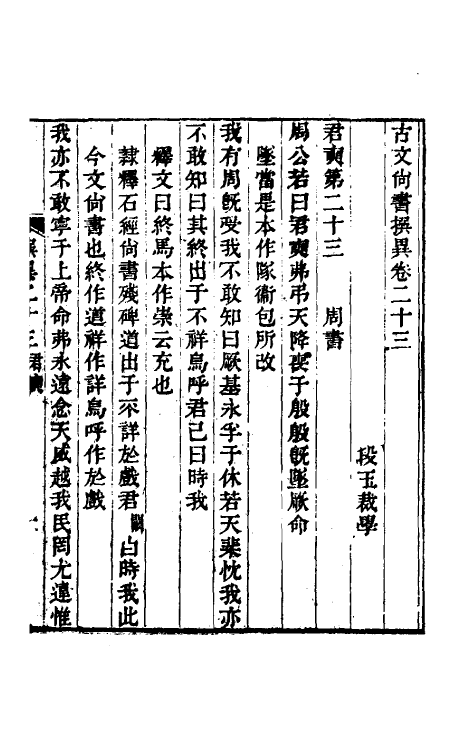 古文尚書撰異卷二十三
段玉裁學
君奭第二十三　周書
周公若曰君奭弗弔天降喪于殷殷旣墜厥命
墜當是本作隊衞包所改
我有周旣受我不敢知曰厥基永孚于休若天棐忱我亦
不敢知曰其終出于不祥烏呼君已曰時我
釋文曰終馬本作崇云充也
隸釋石經尙書殘碑道出于不詳於戲君曰時我此
今文尙書也終作道祥作詳烏呼作於戲
我亦不敢寧于上帝命弗永遠念天威越我民罔尤違惟
撰異二十三君奭